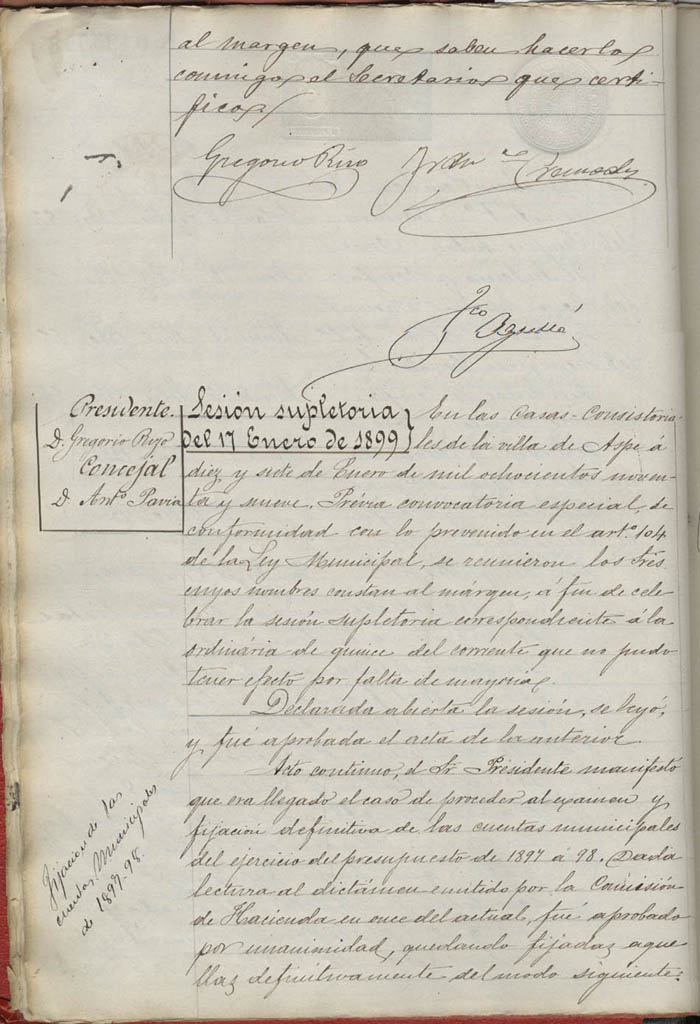 al margen, que saben hacerlo
conmigo el Secretario que certi-
fico
Gregorio Rizo
Fco Agulló
Presidente.
D. Gregorio Rizo
Concejal
D. Antº Pavia
Sesión supletoria
del 17 Enero de 1899
En las Casas-Consistoria-
les de la villa de Aspe á
diez y siete de Enero de mil ochocientos noven-
ta y nueve, Prévia convocatoria especial, de
conformidad con lo prevenido en el artº 104
de la Ley Municipal, se reunieron los Srés
cuyos nombres constan al márgen, á fin de cele-
brar la sesión supletoria correspondiente á la
ordinária de quince del corriente que no pudo
tener efecto por falta de mayoria.
Declarada abierta la sesión, se leyó,
y fué aprobada el acta de la anterior.
Acto continuo, el Sr. Presidente manifestó
que era llegado el caso de proceder al exámen y
fijación definitiva de las cuentas municipales
del ejercicio del presupuesto de 1897 á 98. Dada
lectura al dictámen emitido por la Comisión
de Hacienda en once del actual, fué aprobado
por unanimidad, quedando fijadas aque-
llas definitivamente del modo siguiente:
Fijacion de las
cuentas Municipales
de 1897-98.